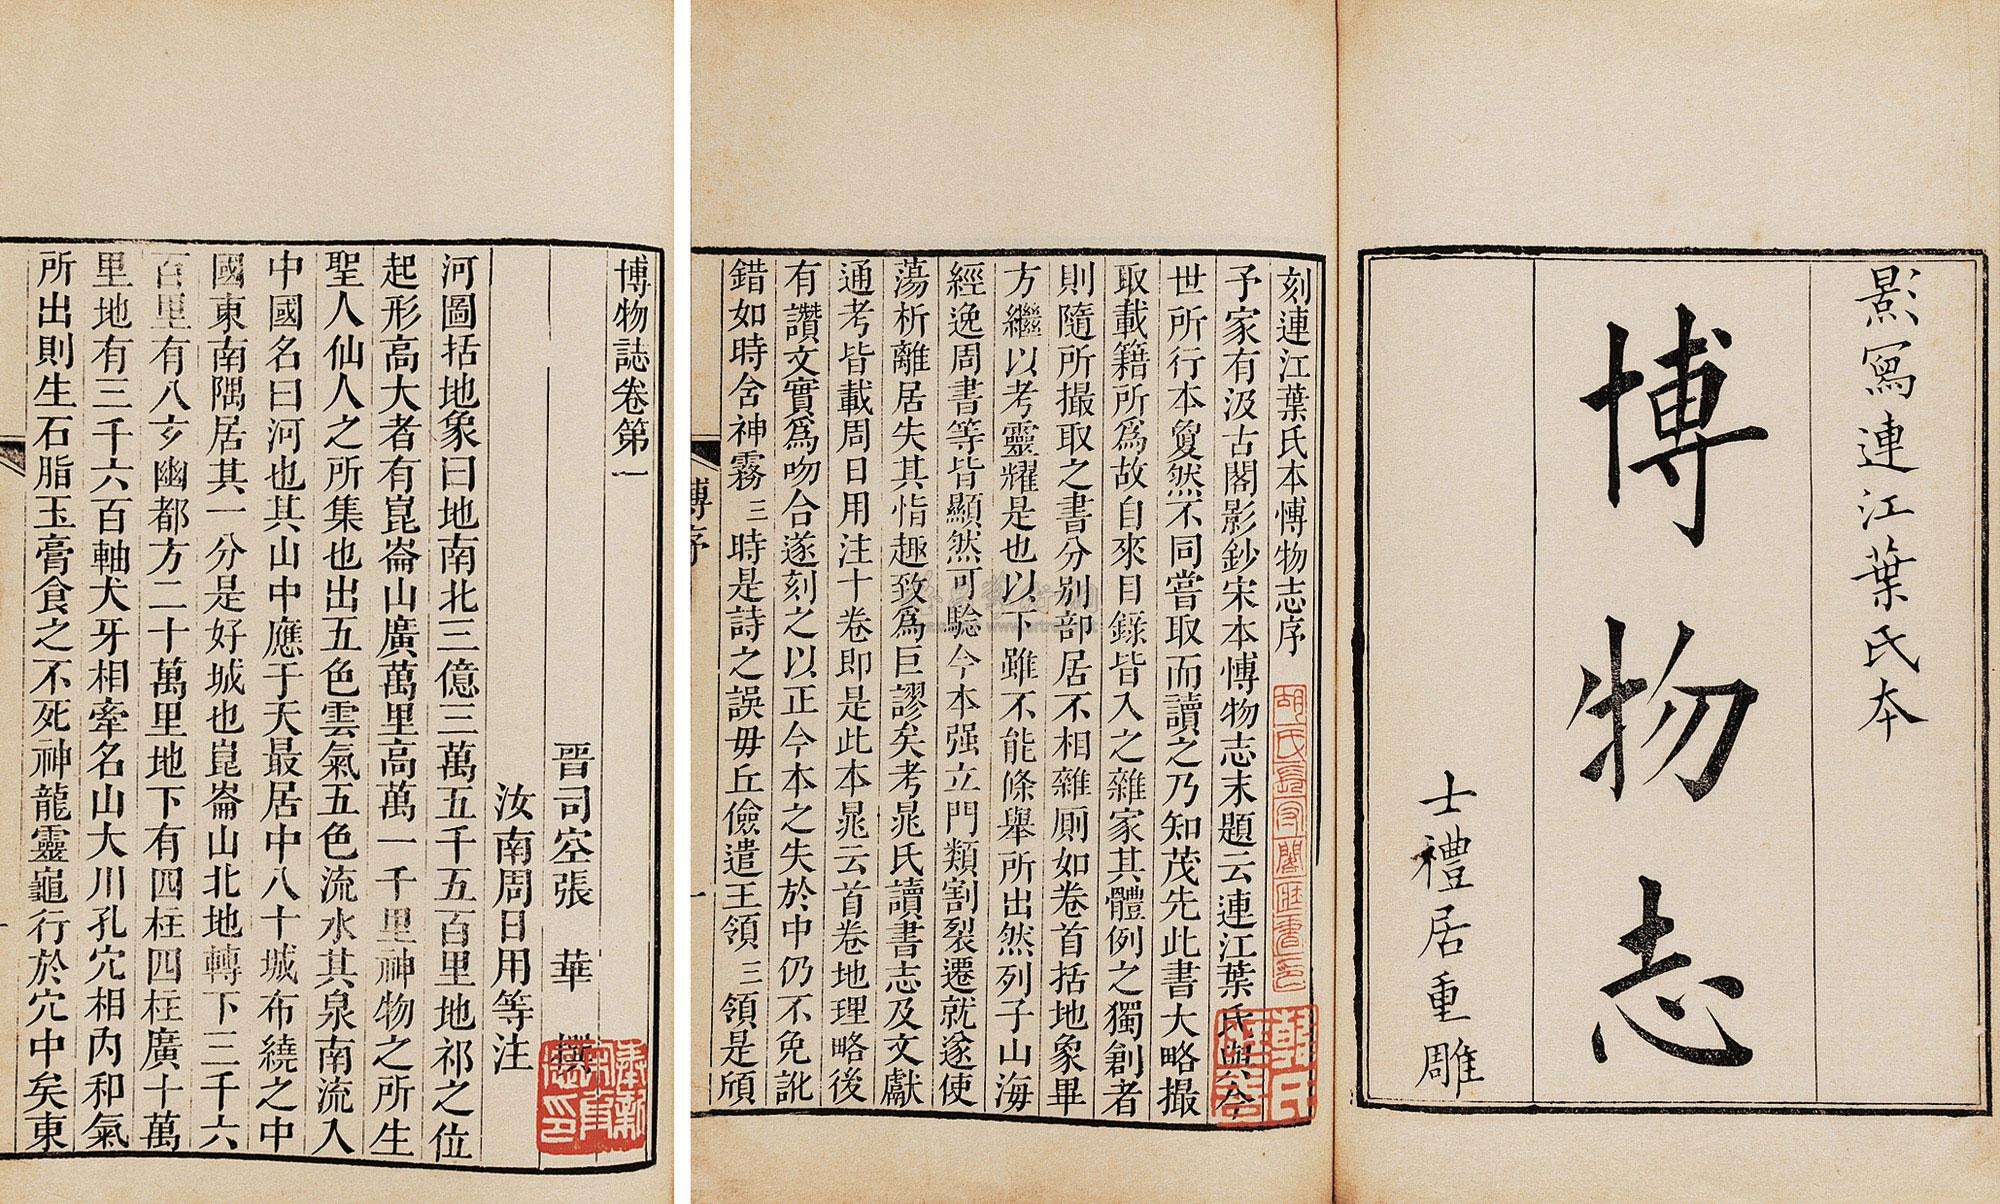 影寫連江葉氏本
博物志
士禮居重雕
刻連江葉氏本愽物志序
予家有汲古閣影鈔宋本愽物志末題云連江葉氏與今
世所行本敻然不同嘗取而讀之乃知茂先此書大略撮
取載籍所爲故自來目錄皆入之雜家其體例之獨創者
則隨所撮取之書分别部居不相雜厠如卷首括地象畢
方繼以考靈耀是也以下雖不能條舉所出然列子山海
經逸周書等皆顯然可驗今本强立門類割裂遷就遂使
蕩析離居失其恉趣致爲巨謬矣考晁氏讀書志及文獻
通考皆載周日用注十卷即是此本晁云首卷地理略後
有讚文實爲吻合遂刻之以正今本之失於中仍不免訛
錯如時含神霧三時是詩之誤毋丘儉遣王領三領是頎
愽序
一
博物誌卷第一
晋司空張華撰
汝南周日用等注
河圖括地象曰地南北三億三萬五千五百里地祁之位
起形高大者有崑崙山廣萬里高萬一千里神物之所生
聖人仙人之所集也出五色雲氣五色流水其泉南流入
中國名曰河也其山中應于天最居中八十城布繞之中
國東南隅居其一分是好城也崑崙山北地轉下三千六
百里有八玄幽都方二十萬里地下有四柱四柱廣十萬
里地有三千六百軸犬牙相牽名山大川孔穴相内和氣
所出則生石脂玉膏食之不死神龍靈龜行於穴中矣東